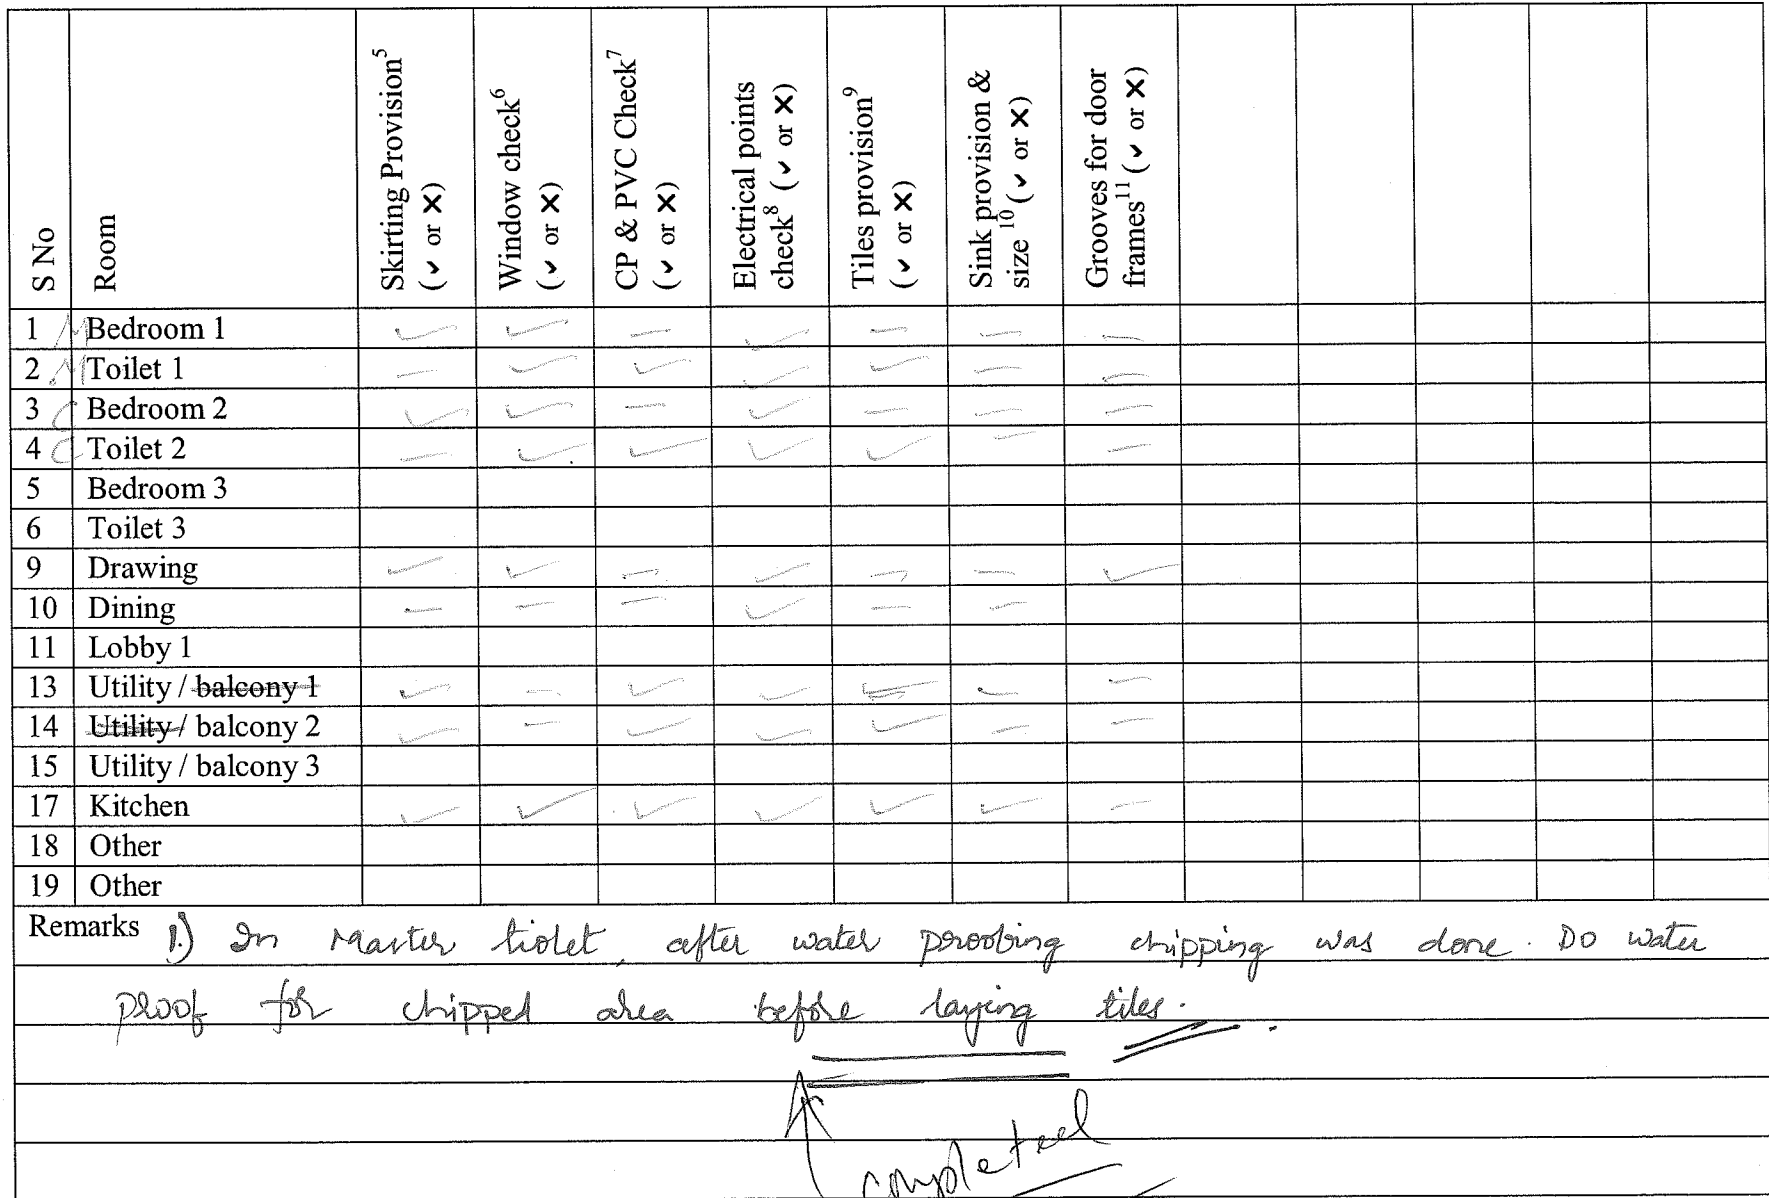 S No Room Skirting Provision5 (✓ or ✗) Window check6 (✓ or ✗) CP & PVC Check7 (✓ or ✗) Electrical points check8 (✓ or ✗) Tiles provision9 (✓ or ✗) Sink provision & size10 (✓ or ✗) Grooves for door frames11 (✓ or ✗)
1 M Bedroom 1 ✓ ✓ — ✓ — — —
2 M Toilet 1 — ✓ ✓ ✓ ✓ — —
3 C Bedroom 2 ✓ ✓ — ✓ — — —
4 C Toilet 2 — ✓ ✓ ✓ ✓ — —
5 Bedroom 3
6 Toilet 3
9 Drawing ✓ ✓ — ✓ — — ✓
10 Dining — — — ✓ — —
11 Lobby 1
13 Utility / balcony 1 ✓ — ✓ ✓ ✓ — —
14 Utility / balcony 2 ✓ — ✓ ✓ ✓ — —
15 Utility / balcony 3
17 Kitchen ✓ ✓ ✓ ✓ ✓ ✓ —
18 Other
19 Other
Remarks 1.) In Master tiolet, after water proobing chipping was done. Do water
proof for chipped area before laying tiles.
completed